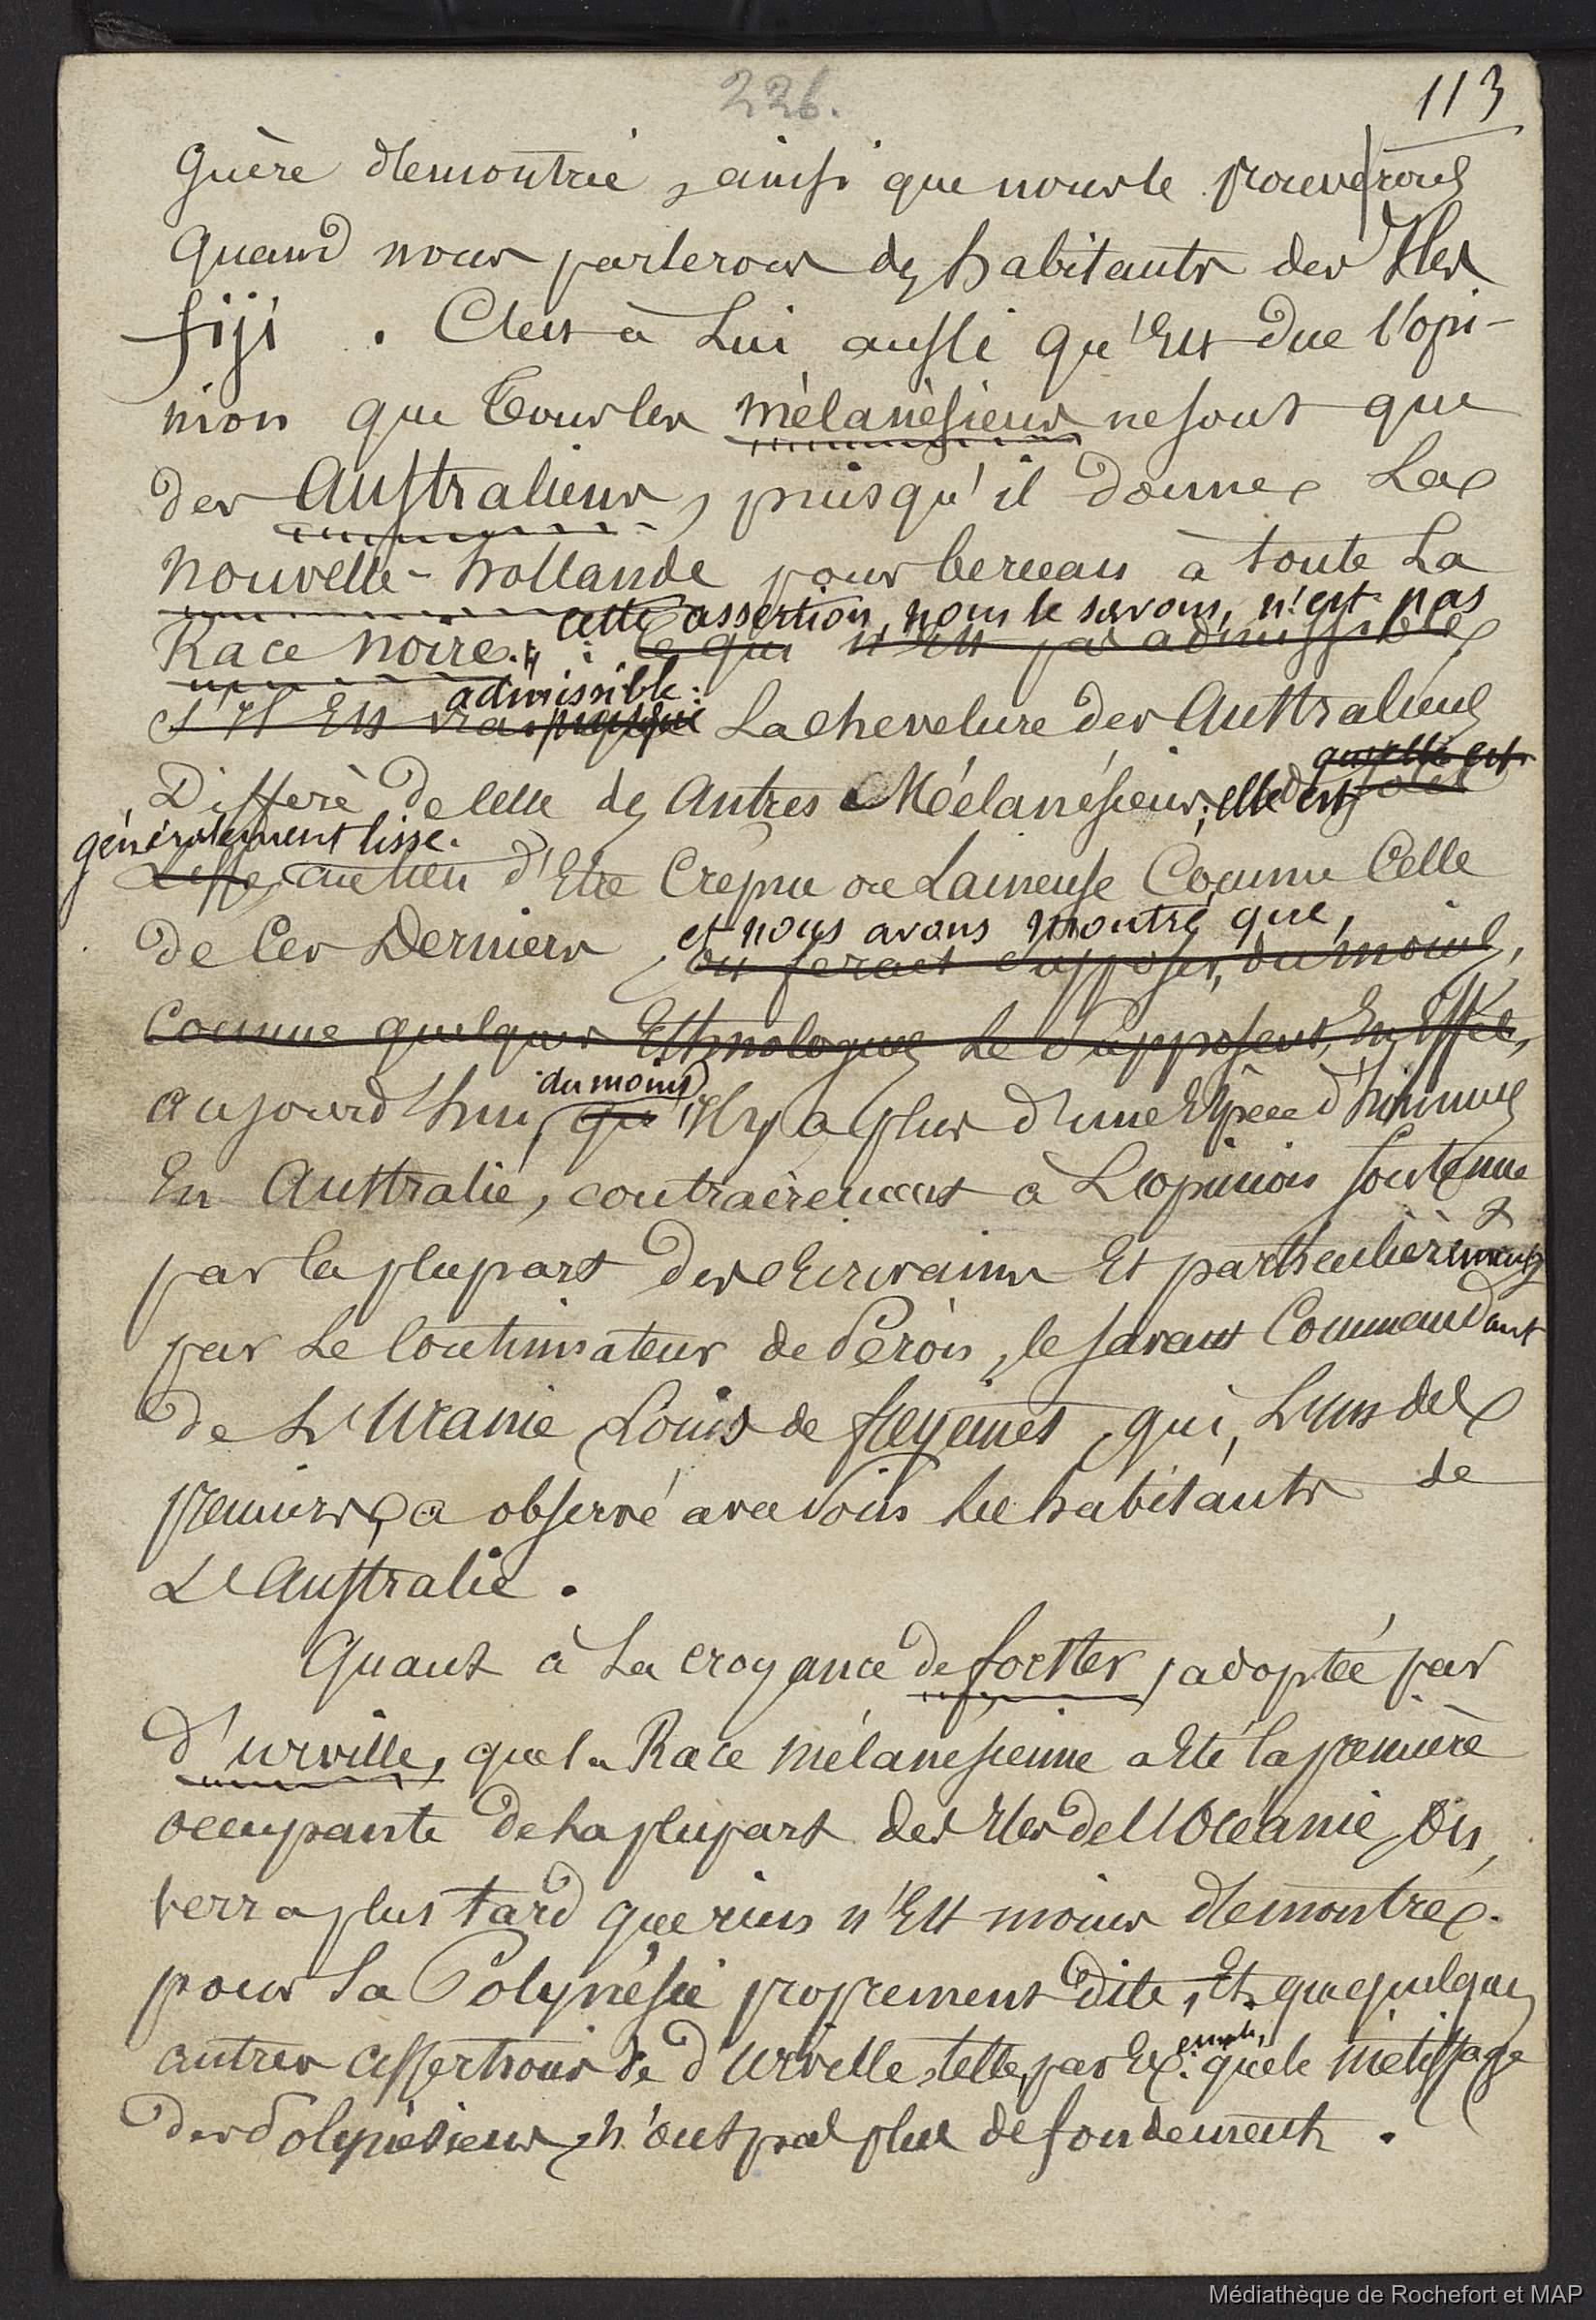 226.
113
guère démontrée, ainsi que nous le prouverons
quand nous parlerons des habitants des Iles
fiji. C'est à Lui aussi qu'Est due l'opi-
nion que Tous les mélanésiens ne sont que
des Australiens, puisqu'il donne La
nouvelle-hollande pour berceau à toute La
cette assertion, nous le savons, n'est pas
Race noire. ce qui n'Est pas admissible
admissible:
s'Il Est vrai puisque La Chevelure des Australiens
qu'elle est
Differe de celle des Autres Mélanésiens; elle est
généralement lisse.
Lisse, au lieu d'Etre Crepue ou Laineuse Comme Celle
et nous avons montré que,
de Ces Derniers, on serait supposer, du moins,
Comme quelques Ethnologues Le Supposent, En Effet,
du moins
aujourd'hui, qu'Il y a plus d'une Espèce d'hommes
En Australie, contrairement à L'opinion soutenue
par la plupart des Ecrivains Et particulièrement
par Le Continuateur de Péron, le savant Commandant
de L'Uranie Louis de freycinet, qui, L'un des
premiers, a observé avec soin les habitants de
L'Australie.
Quant à La croyance de forster, adoptée par
d'urville, que la Race mélanésienne a Eté la première
occupante de La plupart des Iles de l'Océanie, On
verra plus tard que rien n'Est moins démontré
pour La Polynésie proprement dite, Et que quelques
emple,
autres assertions de d'urville, telle, par Ex. que le métissage
des Polynésiens, n'ont pas plus de fondement.
Médiathèque de Rochefort et MAP